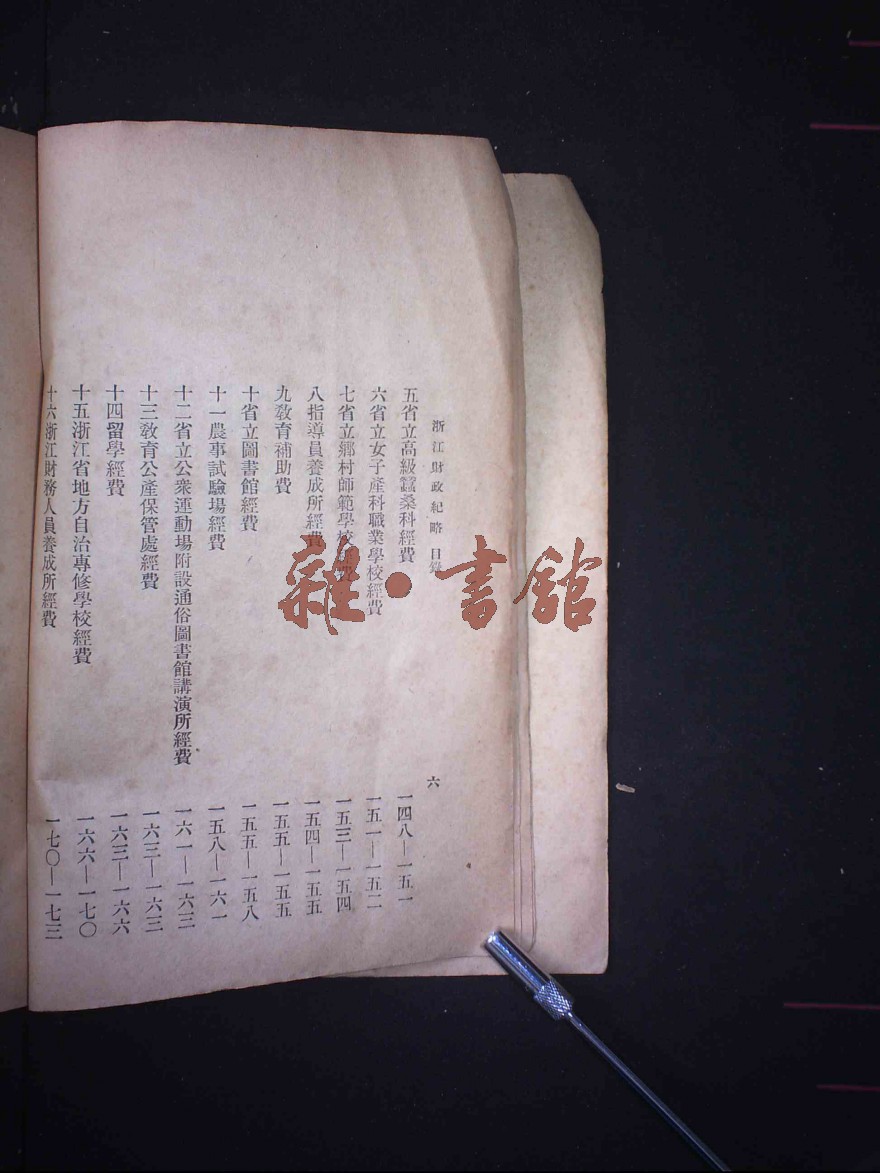 浙江財政紀略 目錄 六
五省立高級蠶桑科經費 一四八—一五一
六省立女子產科職業學校經費 一五一—一五二
七省立鄉村師範學校經費 一五三—一五四
八指導員養成所經費 一五四—一五五
九敎育補助費 一五五—一五五
十省立圖書館經費 一五五—一五八
十一農事試驗場經費 一五八—一六一
十二省立公衆運動場附設通俗圖書館講演所經費 一六一—一六三
十三敎育公產保管處經費 一六三—一六三
十四留學經費 一六三—一六六
十五浙江省地方自治專修學校經費 一六六—一七〇
十六浙江財務人員養成所經費 一七〇—一七三
雜·書館